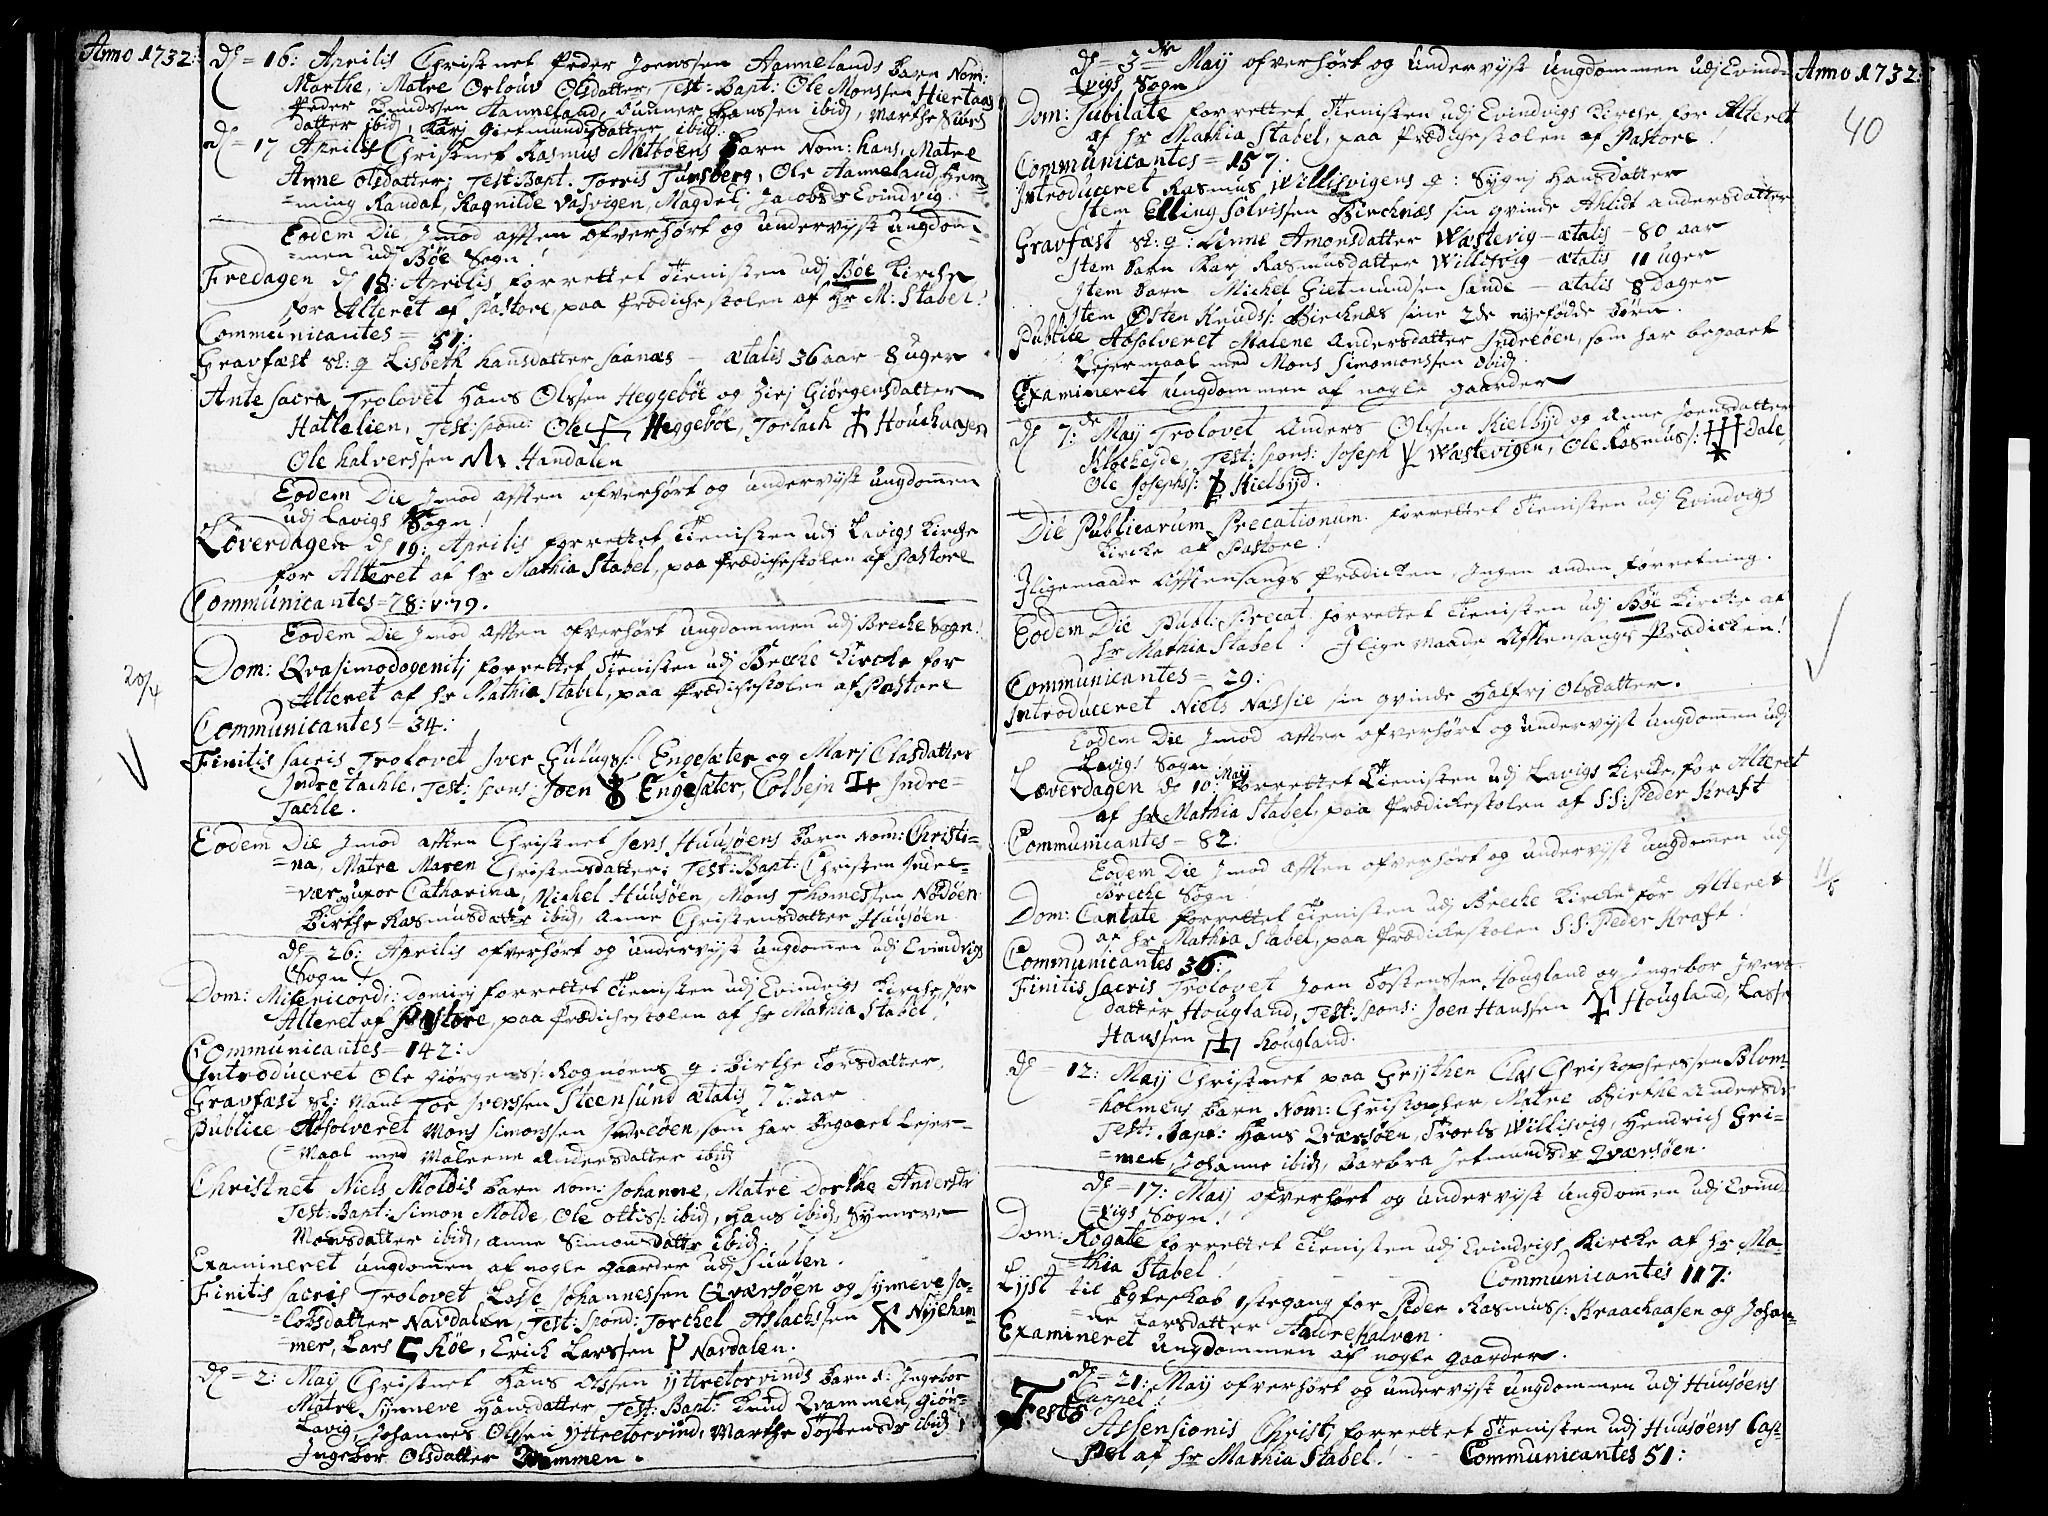 Anno 1732:
d = 16: Aprilis Christnet Peder Joenssen Aannelands barn Nom:
Marthe, Matre Orlouv Olsdatter, Test: Bapt: Ole Monssen Hiertaas
Peder Knudssen Aanneland, Gunner Hanssen ibid, Marthe Siurs
datter ibid, Karj Gietmundsdatter ibid.
d = 17 Aprilis Christnet Rasmus Mittøens barn Nom: hans, Matre
Anne Olsdatter; Test: Bapt. Torris Tunsberg, Ole Aanneland, Hem-
=ming Randal, Ragnilde Vasvigen, Magdel Jacobsdr Evindvig
Eodem Die Imod afften ofverhørt og undervyst ungdom-
=men udj Bøe Sogn!
Fredagen d 18: Aprilis forrettet Tienisten udj Bøe Kirche
for Alteret af Pastore, paa Prædichestolen af Hr M: Stabel!
Communicantes = 51:
Gravfæst Sl: q Lisbeth hansdatter Saanæs — ætatis 36 aar - 8 uger
Ante Sacra Trolovet Hans Olssen Heggebøe og Zirj Giørgensdatter
Hattelien, Test: Spons: Ole Heggebøe, Torlach Houchaasen
Ole Halverssen Handalen
Eodem Die Imod afften ofverhørt og undervyst ungdommen
udj Lavigs Sogn!
Løverdagen d 19: Aprilis forrettet Tienisten udj Lavigs Kirche
for Alteret af Hr Mathia Stabel, paa Prædichestolen af Pastore
Communicantes = 78: v. 79.
Eodem Die Imod afften ofverhørt ungdommen udj Breche Sogn!
20/4
Dom: Qvasimodogenitj forrettet Tienisten udj Breche Kirche for
Alteret af Hr Mathia Stabel, paa Prædichestolen af Pastore
Communicantes - 34:
Finitis Sacris Trolovet Iver Gulugs: Engesæter og Marj Clasdatter
Indre Tachle, Test: Spons: Joen Engesæter, Colbejn Indre=
Tachle.
Eodem Die Imod afften Christnet Jens Huusøens barn Nom: Christi-
=na, Matre Maren Christensdatter; Test: Bapt: Christen Indre-
=vær og uxor Catharina, Michel Huusøen, Mons Thomessen Nødøen
Birthe Rasmusdatter ibid, Anne Christensdatter Huusøen
d = 26: Aprilis ofverhørt og undervyst ungdommen udj Evindvigs
Sogn!
Dom: Misericordi: Dominj forrettet Tienisten udj Evindvigs Kirche for
Alteret af Pastore, paa Prædichestolen af Hr Mathia Stabel!
Communicantes - 142:
Introduceret Ole Giørgens: Rognøens q: Birthe Torsdatter,
Gravfæst Sl: Mand Tor Iverssen Steensund ætatis 77: aar
Publice Absolveret Mons Simonssen Indreøen, som har begaaet Lejer-
=maal med Malene Andersdatter ibid
Christnet Niels Moldis barn Nom: Johanne, Matre Dorthe Andersdr
Test: Bapt: Simon Molde, Ole Ottis: ibid, Hans ibid, Synneve
Monsdatter ibid, Anne Simonsdatter ibid.
Examineret ungdommen af nogle gaarder udj Suulen.
Finitis Sacris Trolovet Lasse Johannessen Qværsøen og Synneve Ja-
=cobsdatter Nardalen, Test: Spond: Torchel Aslachssen Nyeham-
mer, Lars Røe, Erick Larssen Nardalen.
d = 2: May Christnet Hans Olssen Yttretorvinds barn d: Ingebor
Matre Synneve Hansdatter, Test: Bapt: Knud Qvammen, Giør
Lavig, Johannes Olssen Yttretorvind, Marthe Tostensdr ibid,
Ingebor Olsdatter Qvammen.
Anno 1732:
40
d = 3de May ofverhørt og undervyst ungdommen udj Evind-
vigs Sogn
Dom: Jubilate forrettet Tienisten udj Evindvigs Kirche for Alteret
af Hr Mathia Stabel, paa Prædichestolen af Pastore!
Communicantes = 157:
Introduceret Rasmus Willisvigens q: Sygnj Hansdatter
Item Elling Solvissen Birchnæs sin qvinde Ahlidt Andersdatter
Gravfæst Sl: q: Linne Amonsdatter Wæstevig — ætatis - 80 aar
Item barn Karj Rasmusdatter Willisvig — ætatis 11 uger
Item barn Michel Gietmundsen Sande — ætatis 8 dager
Item Østen Knuds: Birchnæs sine 2de nyefødde børn.
Publice Absolveret Malene Andersdatter Indreøen, som har begaaet
Lejermaal med Mons Simonssen ibid
Examineret ungdommen af nogle gaarder
d 7: de May Trolovet Anders Olssen Kielbyd og Anne Joensdatter
Klochejde, Test: Spons: Joseph Wæstevigen, Ole Rasmus: Dale,
Ole Josephs: Kielbyd.
Die Publicarum Precationum forrettet Tienisten udj Evindvigs
Kirche af Pastore!
Iligemaade Afftensangs Prædichen, Ingen anden forretning.
Eodem Die Publ: Precat forrettet Tienisten udj Bøe Kirche af
Hr Mathia Stabel. Iligemaade Afftensangs Prædichen!
Communicantes - 29:
Introduceret Niels Næssie sin qvinde Halfrj Olsdatter.
Eodem Die Imod afften ofverhørt og undervyst ungdommen udj
Lavigs Sogn
Løverdagen d 10: May forrettet Tienisten udj Lavigs Kirche, for Alteret
af Hr Mathia Stabel, paa Prædichestolen af S:S: Peder Kraft
Communicantes - 82.
Eodem Die Imod afften ofverhørt og undervyst ungdommen udj
Breche Sogn!
11/5
Dom: Cantate forrettet Tienisten udj Breche Kirche for Alteret
af Hr Mathia Stabel, paa Prædichestolen S:S: Peder Kraft!
Communicantes 36:
Finitis Sacris Trolovet Joen Tostenssen Hougland og Ingebor Ivers-
datter Hougland, Test: Spons: Joen Hanssen Hougland, Lasse
Hanssen Hougland.
d = 12: May Christnet paa Grythen Clas Christophersen Blom-
=holmens barn Nom: Christopher, Matre Birthe Andersdr
Test: Bapt: Hans Qværsøen, Troels Willisvig, Hendrich Gri-
=men, Johanne ibid, Barbra Jetmundsdr Qværsøen.
d = 17: May ofverhørt og undervyst ungdommen udj Evind-
=vigs Sogn!
Dom: Rogate forrettet Tienisten udj Evindvigs Kirche af Hr Ma-
=thia Stabel! Communicantes 117:
Lyst til Egteskab 1ste gang for Peder Rasmus: Kraachaasen og Johan-
ne Larsdatter Andrehalven.
Examineret ungdommen af nogle gaarder.
d = 21: May ofverhørt og undervyst ungdommen udj Huusøens
Cappel.
Festo Assensionis Christj forrettet Tienisten udj Huusøens Cap-
pel af Hr Mathia Stabel! Communicantes 51: